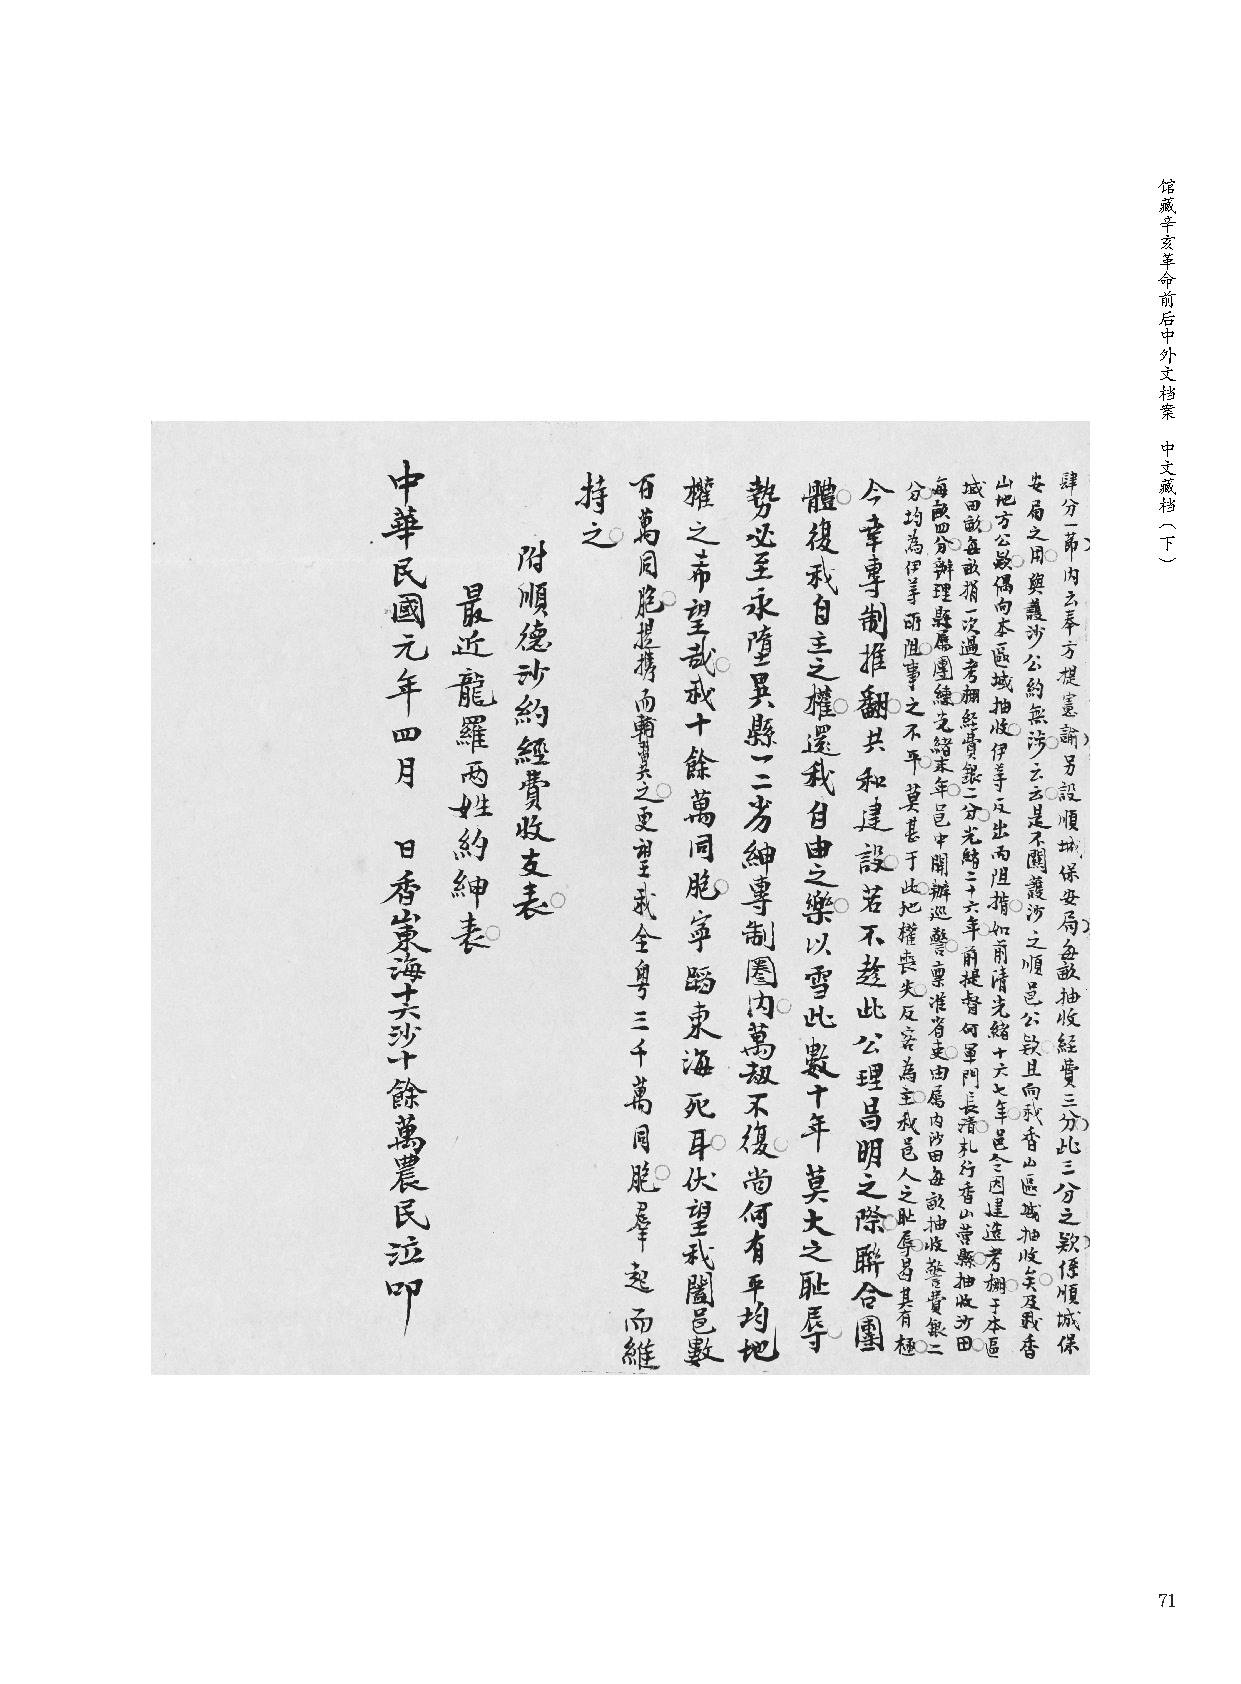 馆藏辛亥革命前后中外文档案　中文藏档（下）
肆分一節内云奉方提憲諭另設順城保安局每畝抽收経費三分此三分之欵係順城保
安局之用與護沙公約無涉云云是不關護沙之順邑公欵且向我香山區域抽收矣及我香
山地方公欵偶向本區域抽收伊等反出而阻撓如前清光緒十六七年邑令因建造考棚于本區
域田畝每畝捐一次過考棚経費銀二分光緒二十六年前提督何軍門長清札行香山營縣抽收沙田
每畝四分辦理縣屬團練光緒末年邑中開辦巡警禀准省吏由屬内沙田每畝抽收警費銀二
分均為伊等所阻事之不平莫甚于此地權喪失反客為主我邑人之耻辱曷其有極
今幸專制推翻共和建設若不趁此公理昌明之際聯合團
體復我自主之權還我自由之樂以雪此數十年莫大之耻辱
勢必至永墮異縣一二劣紳專制圈内萬刼不復尚何有平均地
權之希望哉我十餘萬同胞寜蹈東海死耳伏望我闔邑數
百萬同胞提攜而輔翼之更望我全粤三千萬同胞羣起而維
持之
附順德沙約經費收支表
最近龍羅两姓約紳表
中華民國元年四月　日香山東海十六沙十餘萬農民泣叩
71